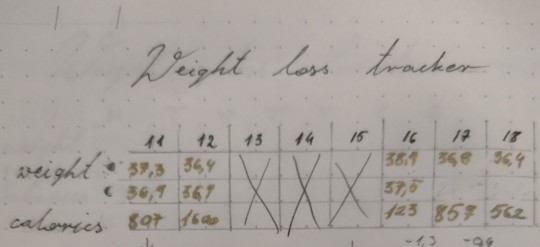 Weight loss tracker
11 12 13 14 15 16 17 18
weight 37,3 36,4 38,9 36,8 36,4
36,9 36,9 37,5
calories 807 1600 123 857 562
-1,3 -0,4